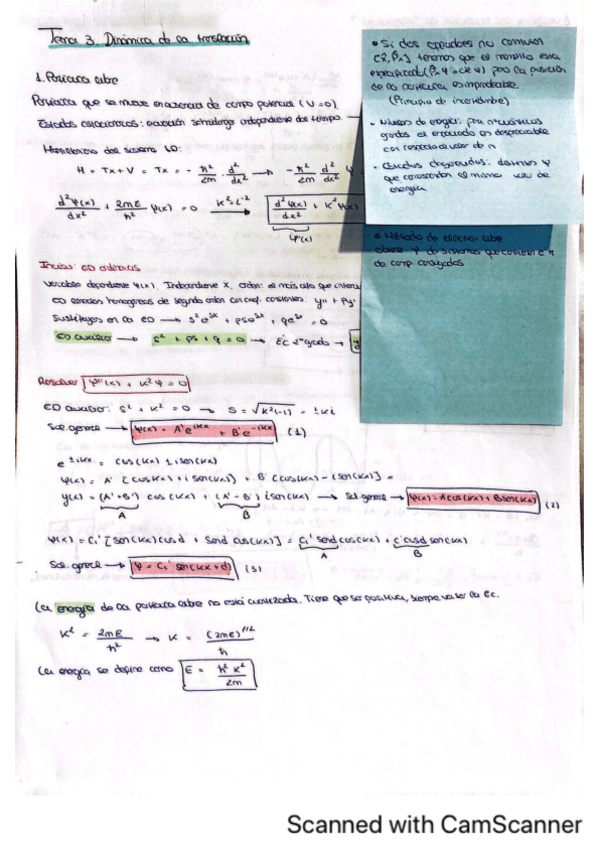 Tema 3. Dinámica de la translación
1. Partícula libre
Partícula que se mueve en ausencia de campo potencial (V=0).
Estados estacionarios: ecuación schrödinger independiente del tiempo. →
Hamiltoniano del sistema 1D:
H = Tx + V = Tx = - ħ²/2m · d²/dx² → - ħ²/2m d²/dx² Ψ
d²Ψ(x)/dx² + 2mE/ħ² Ψ(x) = 0 K²=L⁻² → d²Ψ(x)/dx² + K² Ψ(x)
Ψ''(x)
• Si dos operadores no conmutan
[x̂, P̂x] tenemos que el momento está
especificado por la posición
de la partícula es improbable.
(Principio de incertidumbre)
• Niveles de energía: para n cuánticos
grandes el espaciado es despreciable
con respecto al valor de n
• Estados degenerados: distintos Ψ
que comparten el mismo valor de
energía
• Método de electrón libre
de comp. conjugados
Inciso: ED ordinarias
Variables dependiente Ψ(x). Independiente X. orden: el más alto que
ED lineales homogéneas de segundo orden con coef. constantes: y'' + Py'
Sustituyes en la ED → s²e^sx + pse^sx + qe^sx = 0
ED auxiliar → s² + ps + q = 0 → Ec 2º grado → y
Resolver Ψ''(x) + K²Ψ = 0
ED auxiliar: s² + K² = 0 → S = √K²(-1) = ±Ki
Sol. general → Ψ(x) = A'e^iKx + B'e^-iKx (1)
e^±iKx = cos(Kx) ± i sen(Kx)
Ψ(x) = A' [cos(Kx) + i sen(Kx)] + B' [cos(Kx) - i sen(Kx)] =
Ψ(x) = (A'+B') cos(Kx) + (A'-B') i sen(Kx) → Sol. general → Ψ(x) = A cos(Kx) + B sen(Kx) (2)
A B
Ψ(x) = C₁' [sen(Kx) cos d + sen d cos(Kx)] = C₁' sen d cos(Kx) + C₁' cos d sen(Kx)
A B
Sol. general → Ψ = C₁' sen(Kx+d) (3)
La energía de la partícula libre no está cuantizada. Tiene que ser positiva, siempre valor la Ec.
K² = 2mE/ħ² → K = (2mE)^1/2/ħ
La energía se define como E = ħ²K²/2m
Scanned with CamScanner